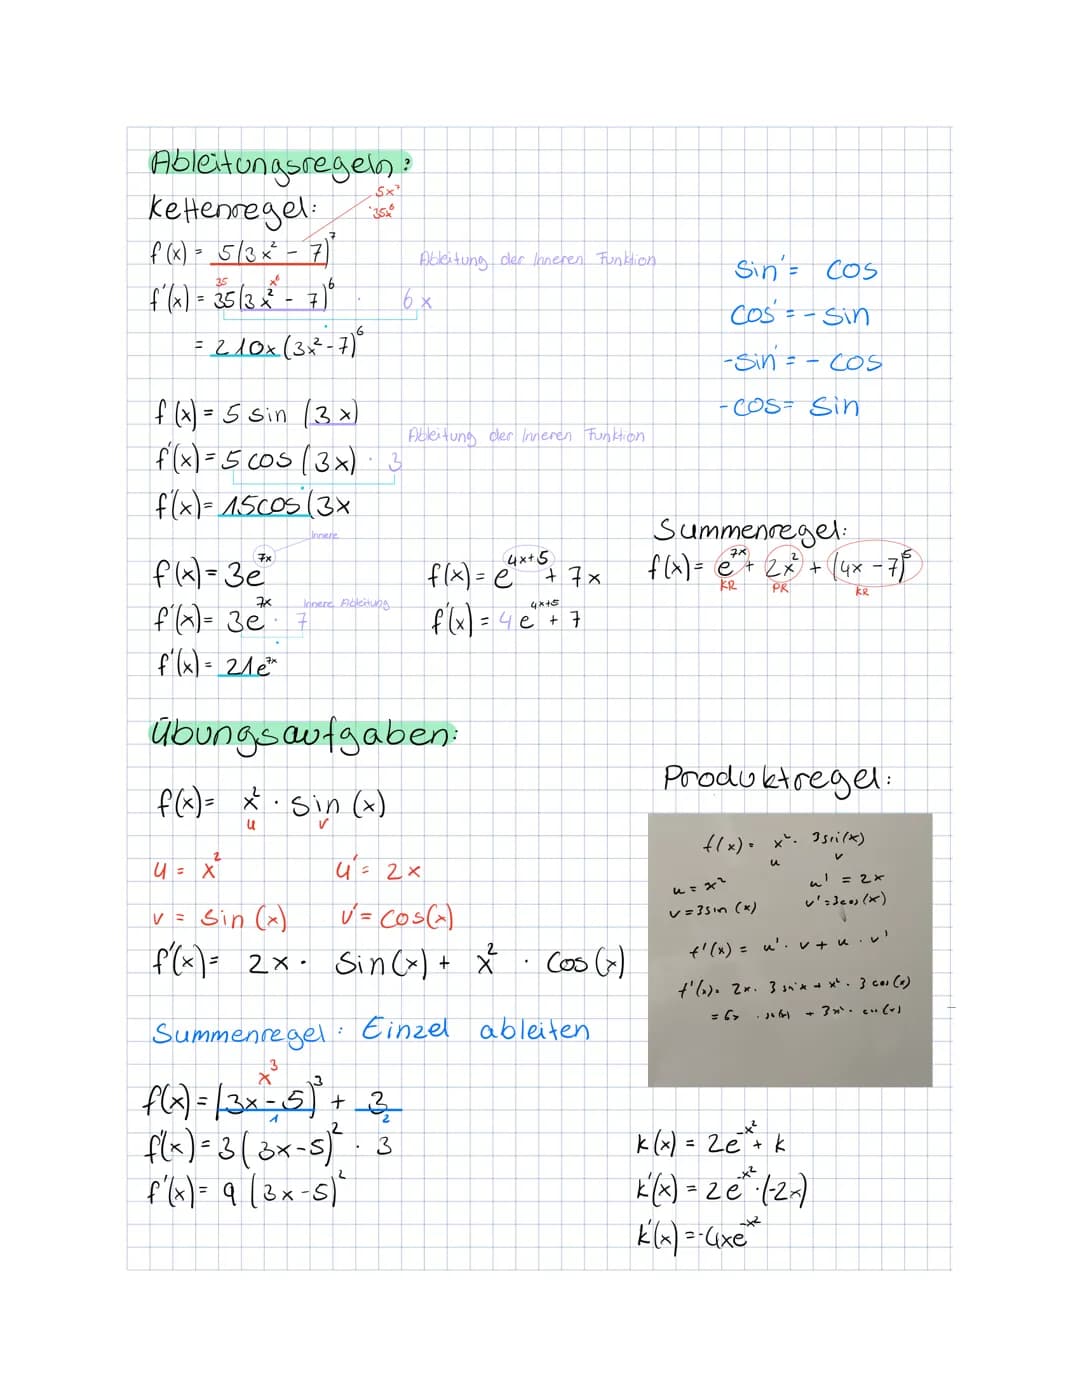 Ableitungsregeln:
Kettenregel:
5x⁷
35x⁶
f(x) = 5(3x² - 7)⁷
Ableitung der Inneren Funktion
35 x⁶
f'(x) = 35(3x² - 7)⁶ · 6x
= 210x(3x²-7)⁶
sin' = cos
cos' = - sin
-sin' = - cos
-cos = sin
f(x) = 5 sin (3x)
Ableitung der Inneren Funktion
f'(x) = 5 cos (3x) · 3
f'(x) = 15cos(3x
Innere
f(x) = 3e⁷ˣ
Innere Ableitung
f'(x) = 3e⁷ˣ · 7
f'(x) = 21e⁷ˣ
f(x) = e⁴ˣ⁺⁵ + 7x
f'(x) = 4e⁴ˣ⁺⁵ + 7
Summenregel:
f(x) = e⁷ˣ + 2x² + (4x - 7)⁵
KR PR KR
Übungsaufgaben:
f(x) = x² · sin (x)
u v
u = x² u' = 2x
v = sin (x) v' = cos(x)
f'(x) = 2x · sin(x) + x² · cos(x)
Produktregel:
f(x) = x² · 3sin(x)
u v
u = x² u' = 2x
v = 3sin (x) v' = 3cos(x)
f'(x) = u' · v + u · v'
f'(x) = 2x · 3 sin x + x² · 3 cos(x)
= 6x · sin(x) + 3x² · cos(x)
Summenregel: Einzel ableiten
x³
f(x) = (3x-5)³ + 3
1 2
f'(x) = 3(3x-5)² · 3
f'(x) = 9 (3x-5)²
k(x) = 2e^-x² + k
k'(x) = 2e^-x² · (-2x)
k'(x) = -4xe^-x²